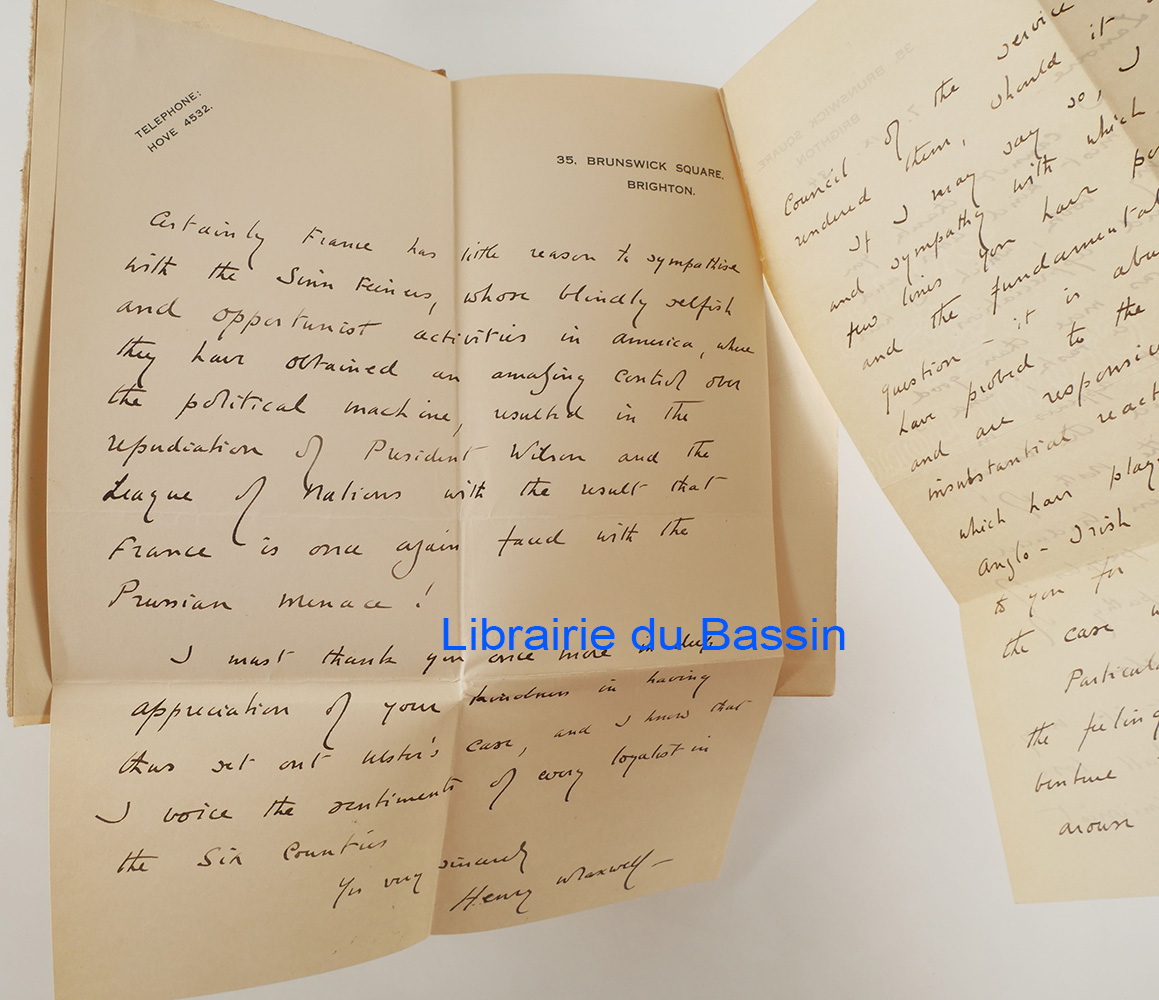 TELEPHONE:
HOVE 4532.
35, BRUNSWICK SQUARE,
BRIGHTON.
Certainly France has little reason to sympathise
with the Sinn Feiners, whose blindly selfish
and opportunist activities in America, where
they have obtained an amazing control over
the political machine, resulted in the
repudiation of President Wilson and the
League of Nations with the result that
France is once again faced with the
Prussian menace!
I must thank you once more in deep
appreciation of your kindness in having
thus set out Ulster's case, and I know that
I voice the sentiments of every loyalist in
the Six Counties
Yrs very sincerely
Henry Maxwell —
Librairie du Bassin
35, BRUNSWICK SQUARE
BRIGHTON
Council of the service
rendered them, should it
If I may say so, I
and sympathy with which
few lines you have
and the fundamental
question - it is
have probed to the
and are
insubstantial
which have
Anglo-Irish
to you for
the case
the
venture
arouse